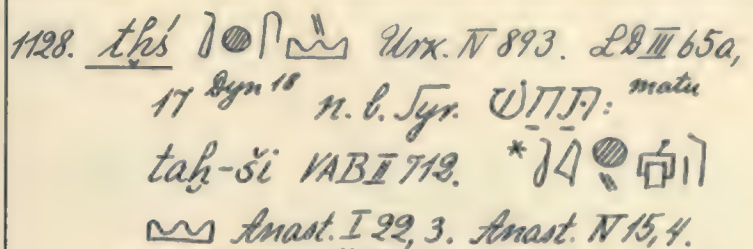 1128. tḫś Urk. IV 893. LD III 65a,
17 Dyn 18 n. b. Syr. תַּחַשׁ: matu
taḫ-ši VAB II 712. *
Anast. I 22, 3. Anast. IV 15, 4.